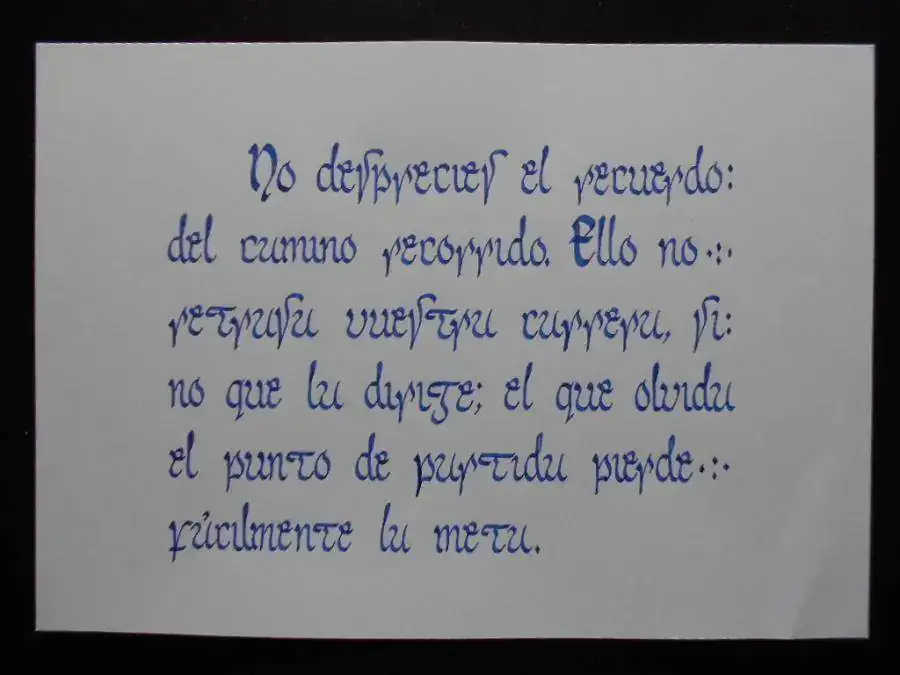 No desprecies el recuerdo:
del camino recorrido. Ello no·:·
retrasa vuestra carrera, si:
no que la dirige; el que olvida
el punto de partida pierde·:·
fácilmente la meta.